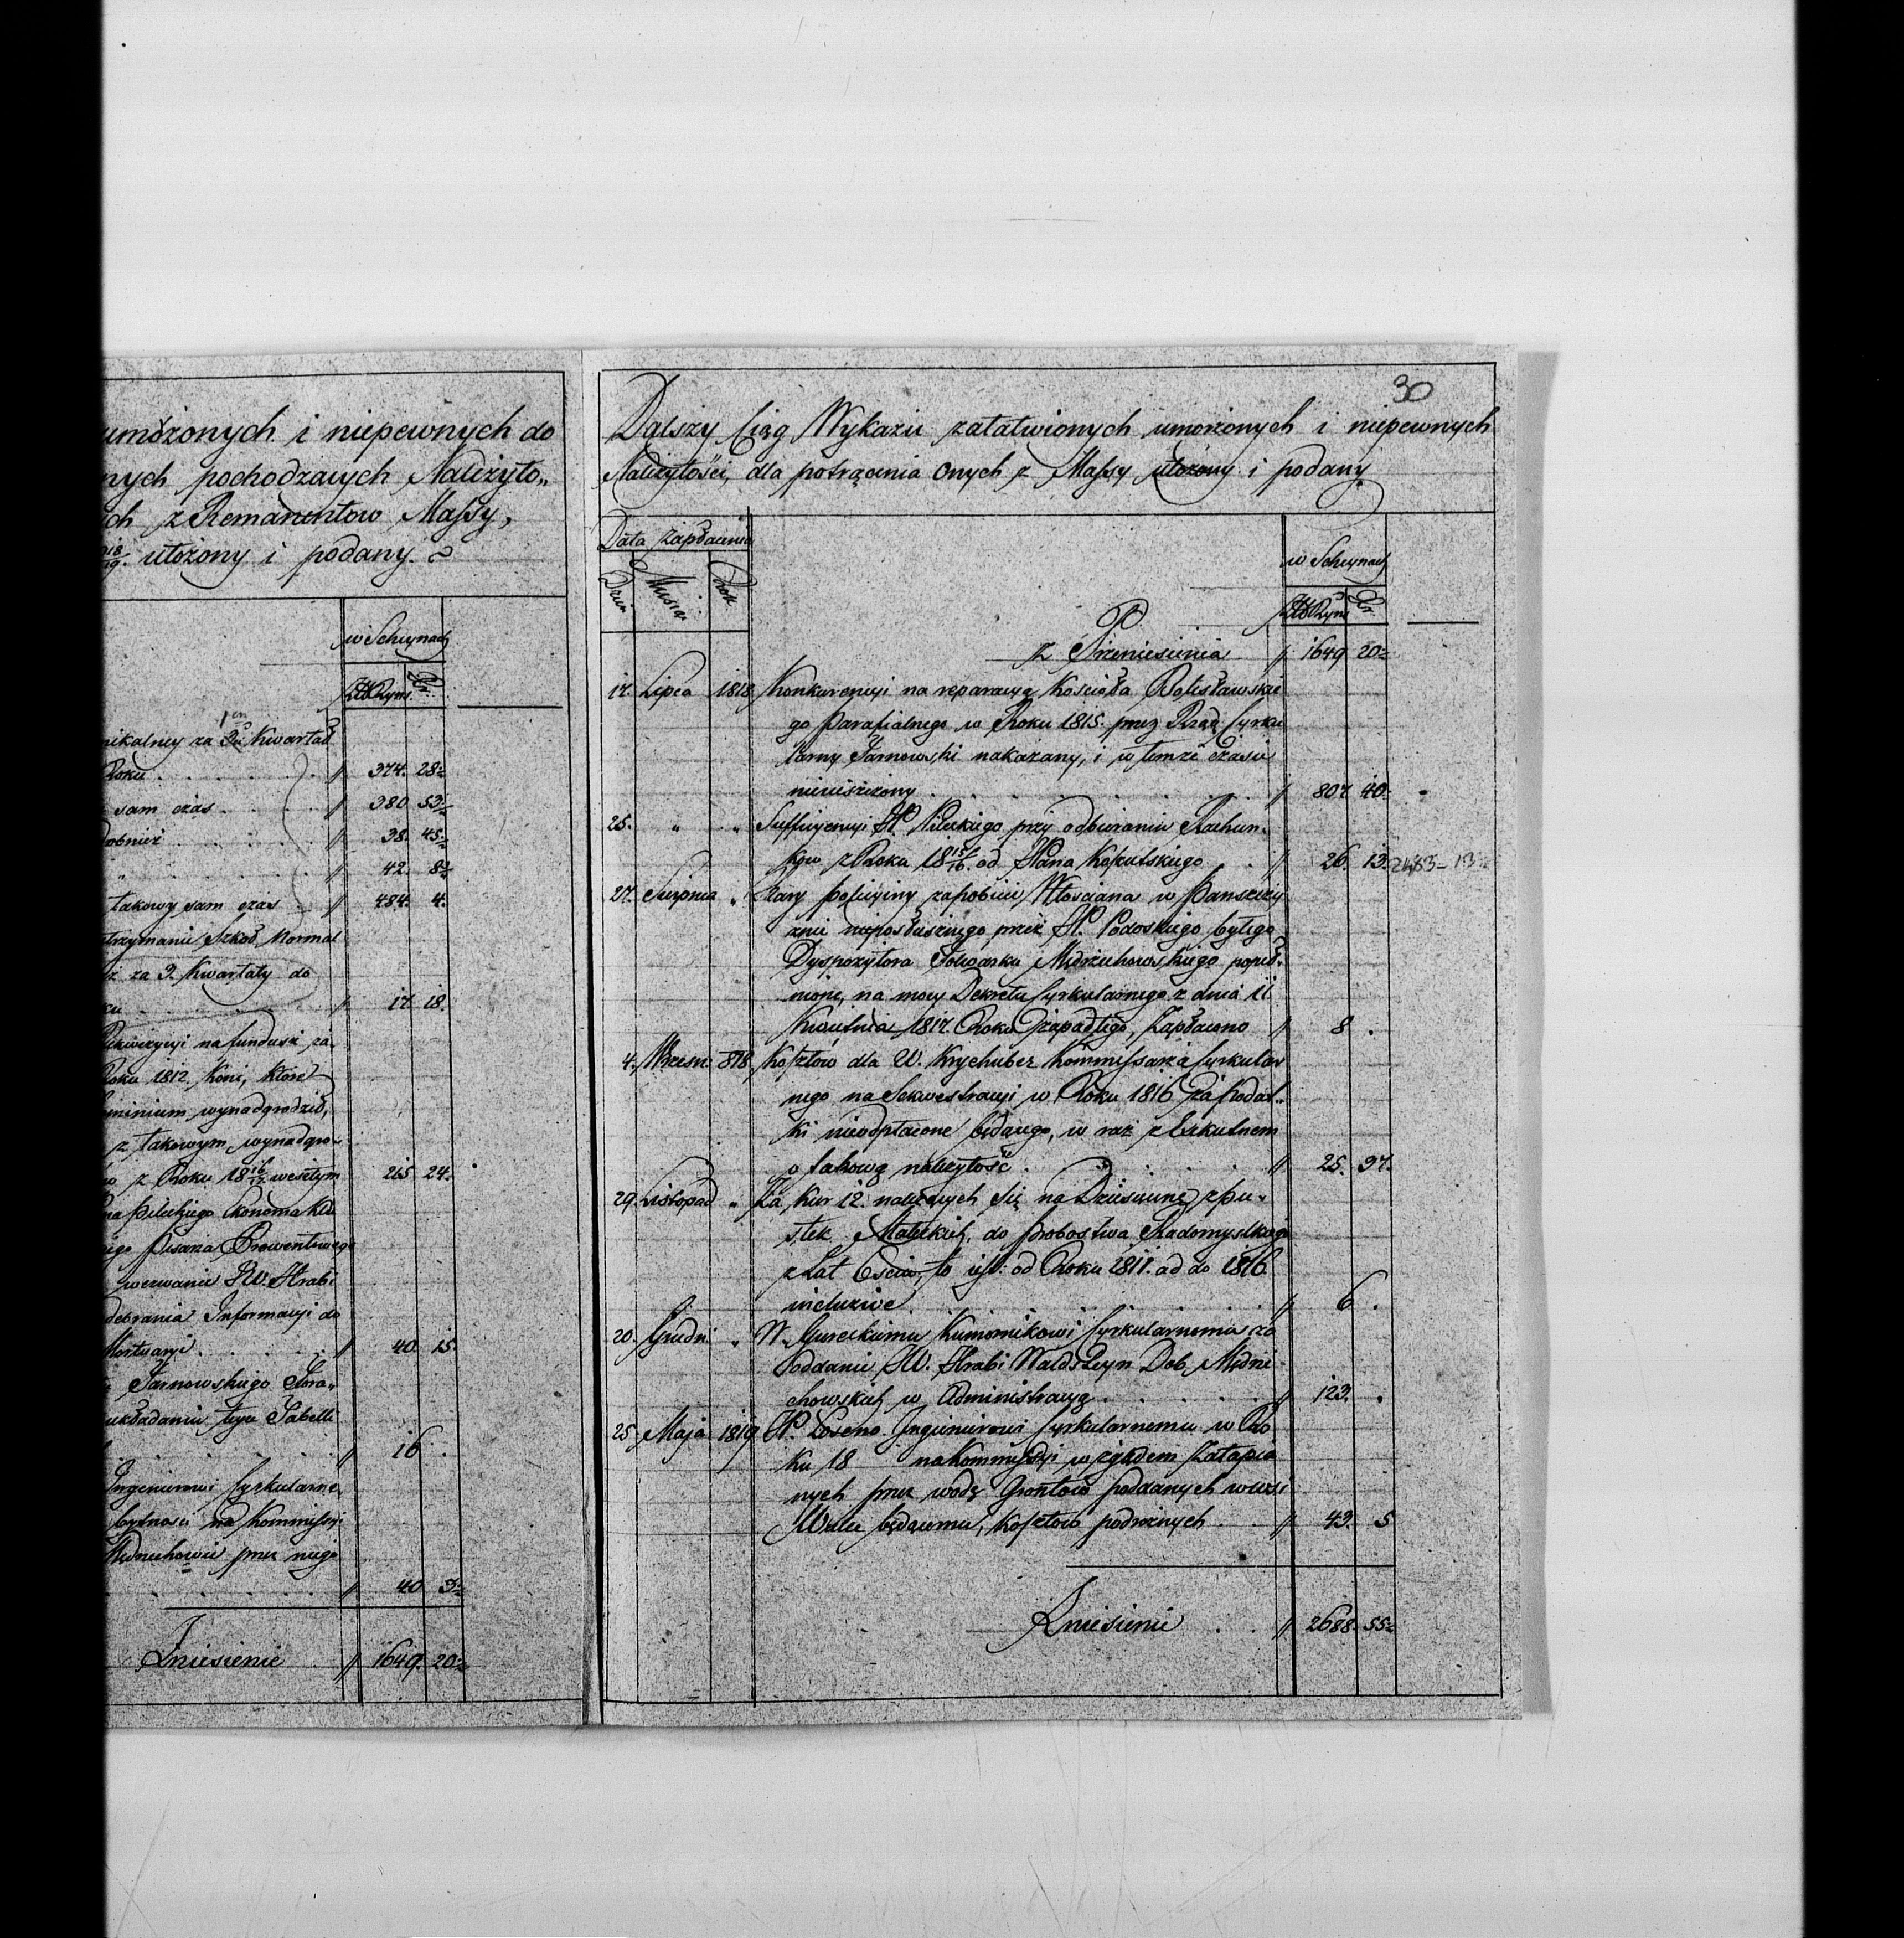 umożonych i niepewnych do
nych pochodzących Należyto„
ich z Remanentow Massy,
ułożony i podany.
w Scheynach
ZłRyns. Xr.
nikalney za 3ci Kwartał
1en
Roku 374. 28
sam czas 380 53
38. 45
" 42. 8
takowy sam czas 484. 4.
trzymanie Szkoł Normal
z za 3. Kwartały do
ku 17. 18.
Rekwizycyi na fundusz za.
Roku 1812. Koni, które
ominium wynadgrodził,
z takowym wynadgro-
z Roku 18 16/17 weszłym 215 24.
na Pileckiego Ekonoma
ego Pisarza Prowentowego
wezwanie JW. Hrabi
debrania Informacyi do
Mortuaryi 40. 15.
Tarnowskiego
układaniu teyże Tabelli
16
Ingenierowi Cyrkularne
bytnosci na Kommissyi
Miedrzechowie przez niego
40 3
Zniesienie 1649. 20
30
Dalszy Ciąg Wykazu załatwionych umożonych i niepewnych
Należytości, dla potrącenia onych z Massy ułożony i podany
Data zapłacenia
w Scheynach
Dzień Miesiąc Rok ZłRyns Xr.
Z Przeniesienia 1649 20
17. Lipca 1818 Konkurencyi na reparacyą Kościoła Bolesławskie
go Parafialnego w Roku 1815. przez Rząd Cyrku
larny Tarnowski nakazany, i w temże czasie
nieuiszczony 807. 40.
25. " " Sufficyencyi JP. Pileckiego przy odbieraniu Rachun„
kow z Roku 18 15/16. od JPana Koputskiego 26. 13. 2483-13
27. Sierpnia " Kary policyiny zapobicie Włościana w Pańszczy
znie nieposłusznego przez JP. Podoskiego byłego
Dyspozytora Folwarku Miedrzechowskiego popeł„
nione, na mocy Dekretu Cyrkularnego z dnia 11
Kwietnia 1817. Roku zapadłego, Zapłacono 8 .
4. Wrzesn: 818. Kosztów dla W. Krychuber Kommissarza Cyrkular
nego na Sekwestracyi w Roku 1816 za Podat„
ki nieodpłacone będącego, w raz z Exkutnem
o takową należytość 25. 37.
29. Listopad " Za Kur 12. należących się na Dziesięcinę z Pu„
stek Małeckich, do Probostwa Radomyslkiego
z Lat 6ściu, to iest: od Roku 1811. ad do 1816.
incluzive 6 .
20. Grudn: " W. Gureckiemu Kumornikowi Cyrkularnemu za
Poddanie JW. Hrabi Waldszteyn Dob Miedrze
chowskich w Administracyą 123. .
25. Maja 1819 JP. Loseno Ingenierowi Cyrkularnemu w Ro
ku 18 na Kommissyi względem Zatapia
nych przez wodę Gontów poddanych w wsi
Woli będącemu, Kosztow podrożnych 43. 5
Zniesienie 2688. 55